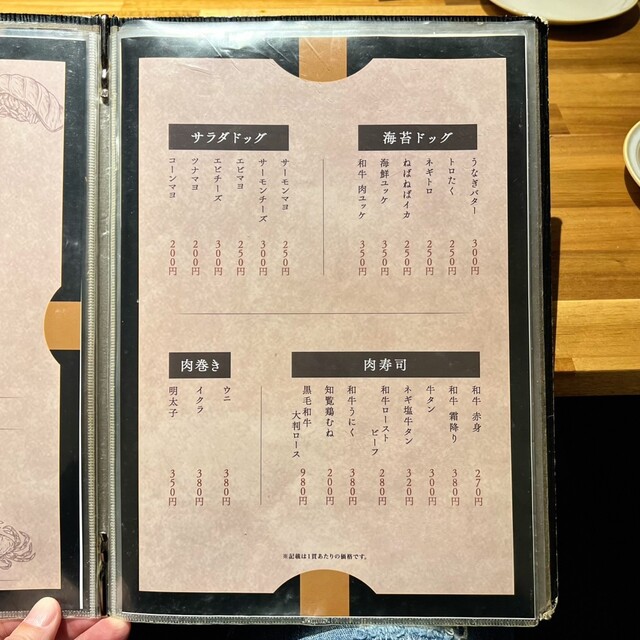 海苔ドッグ
うなぎバター 300円
トロたく 250円
ネギトロ 250円
ねばねばイカ 250円
海鮮ユッケ 350円
和牛 肉ユッケ 350円
サラダドッグ
サーモンマヨ 250円
サーモンチーズ 300円
エビマヨ 250円
エビチーズ 300円
ツナマヨ 200円
コーンマヨ 200円
肉寿司
和牛 赤身 270円
和牛 霜降り 380円
牛タン 300円
ネギ塩牛タン 320円
和牛ロースト
ビーフ 280円
和牛うにく 380円
知覧鶏むね 200円
黒毛和牛
大判ロース 980円
肉巻き
ウニ 380円
イクラ 380円
明太子 350円
※記載は1貫あたりの価格です。